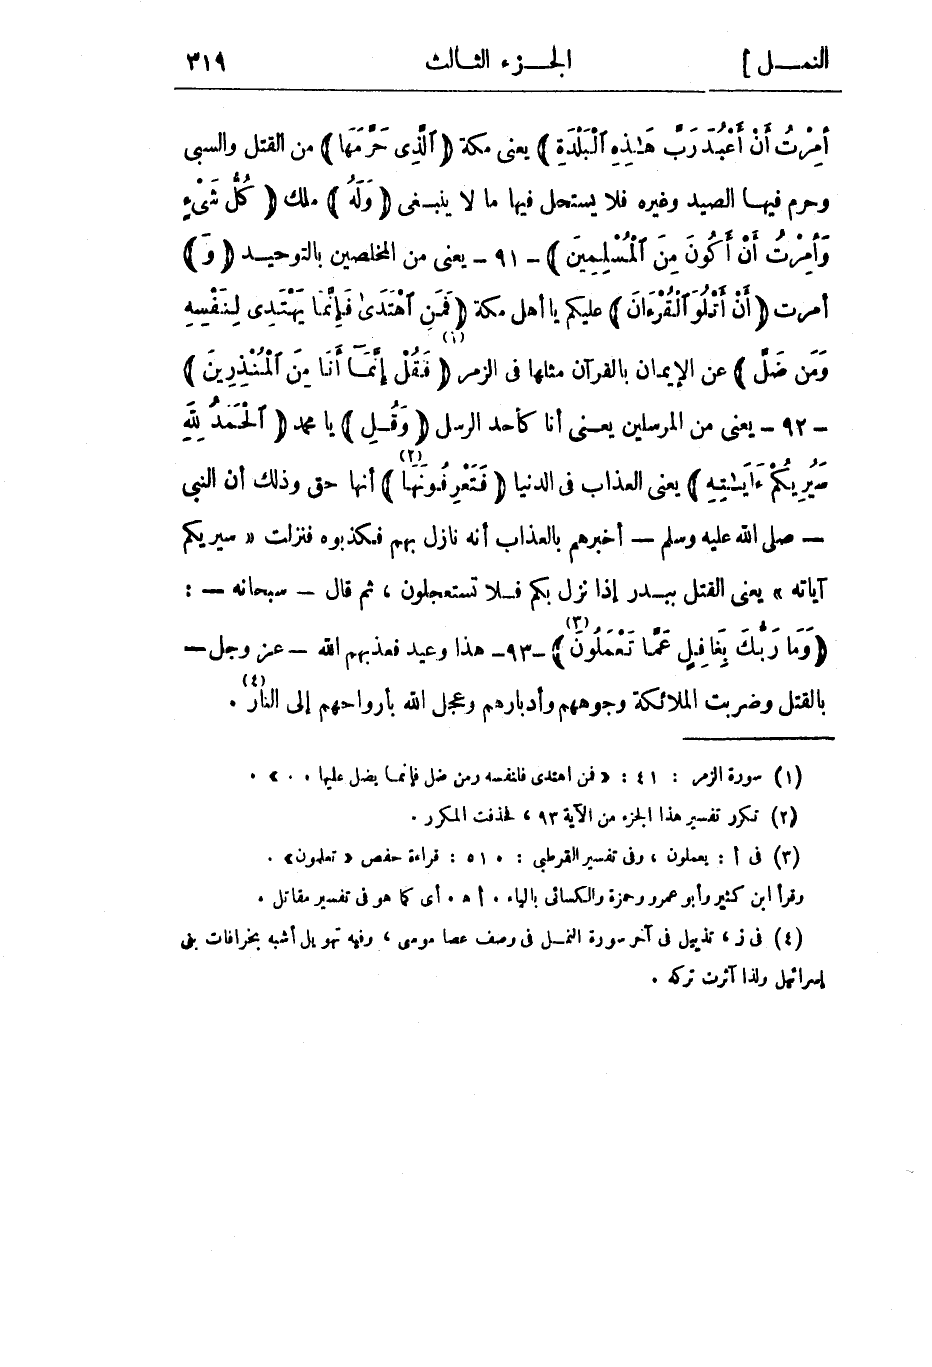 النمـــل ] الجـــزء الثـالث ٣١٩
أُمِرْتُ أَنْ أَعْبُدَ رَبَّ هَـٰذِهِ ٱلْبَلْدَةِ ) يعنى مكة ( ٱلَّذِى حَرَّمَهَا ) من القتل والسبى
وحرم فيهـا الصيد وغيره فلا يستحل فيها ما لا ينبـغى ( وَلَهُ ) ملك ( كُلُّ شَىْءٍ
وَأُمِرْتُ أَنْ أَكُونَ مِنَ ٱلْمُسْلِمِينَ ) - ٩١ - يعنى من المخلصين بالتوحيـد ( وَ )
أمرت ( أَنْ أَتْلُوَ ٱلْقُرْءَانَ ) عليكم يا أهل مكة ( فَمَنِ ٱهْتَدَىٰ فَإِنَّمَا يَهْتَدِى لِنَفْسِهِ
وَمَن ضَلَّ ) عن الإيمان بالقرآن مثلها فى الزمر (١) ( فَقُلْ إِنَّمَآ أَنَا مِنَ ٱلْمُنْذِرِينَ )
- ٩٢ - يعنى من المرسلين يعـنى أنا كأحد الرسل ( وَقُلِ ) يا محمد ( ٱلْحَمْدُ لِلَّهِ
سَيُرِيكُمْ ءَايَـٰتِهِ ) يعنى العذاب فى الدنيا ( فَتَعْرِفُونَهَا (٢) ) أنها حق وذلك أن النبى
— صلى الله عليه وسلم — أخبرهم بالعذاب أنه نازل بهم فكذبوه فنزلت « سيريكم
آياته » يعنى القتل ببـدر إذا نزل بكم فـلا تستعجلون ، ثم قال — سبحانه — :
( وَمَا رَبُّكَ بِغَافِلٍ عَمَّا تَعْمَلُونَ (٣) ) -٩٣- هذا وعيد فعذبهم الله —عز وجل—
بالقتل وضربت الملائكة وجوههم وأدبارهم وعجل الله بأرواحهم إلى النار (٤) .
(١) سورة الزمر : ٤١ : « فمن اهتدى فلنفسه ومن ضل فإنمـا يضل عليها . . » .
(٢) تكرر تفسير هذا الجزء من الآية ٩٣ ، فحذفت المكرر .
(٣) فى أ : يعملون ، وفى تفسير القرطبى : ٥١٠ : قراءة حفص « تعلمون» .
وقرأ ابن كثير وأبو عمرو وحمزة والكسائى بالياء . أ ه . أى كما هو فى تفسير مقاتل .
(٤) فى ز ، تذييل فى آخر سورة النمـل فى وصف عصا موسى ، وفيه تهويل أشبه بخرافات بنى
إسرائيل ولذا آثرت تركه .